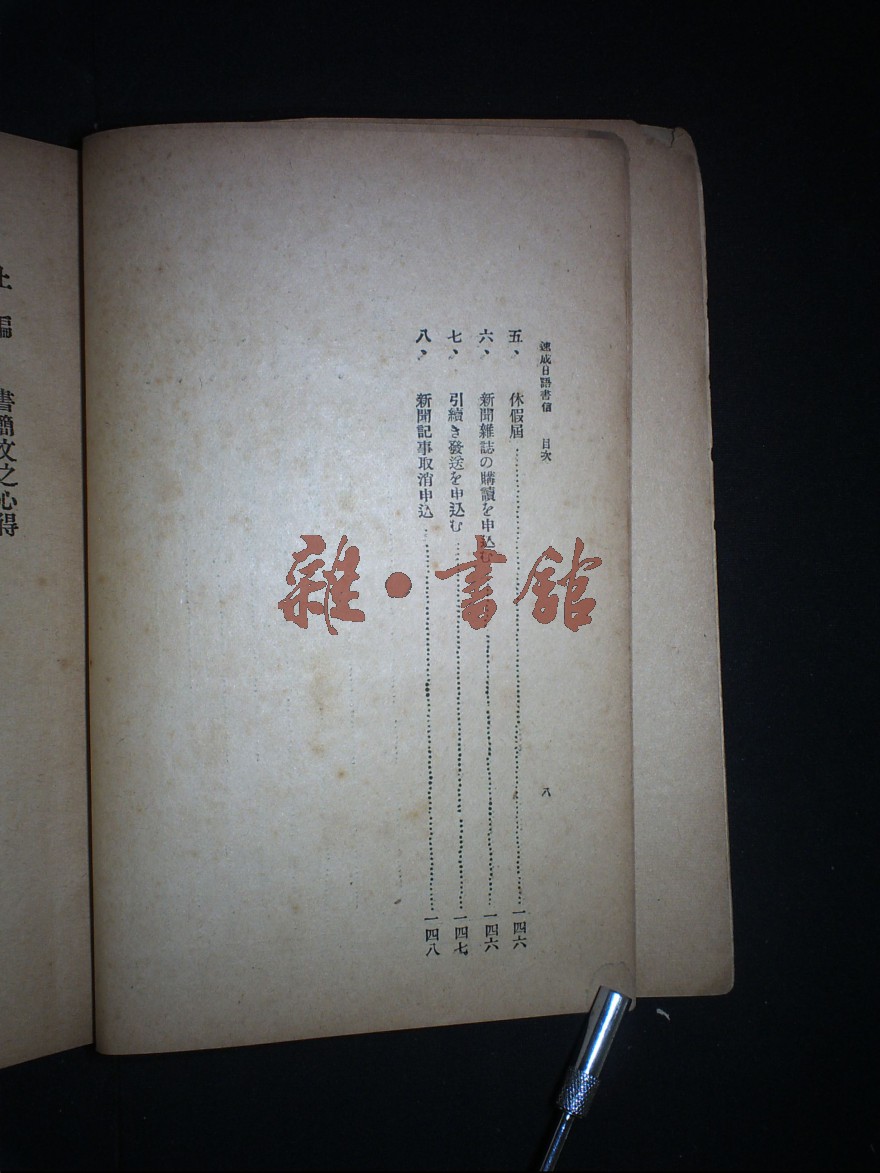 速成日語書信 目次 八
五、 休假屆……一四六
六、 新聞雜誌の購讀を申込む……一四六
七、 引續き發送を申込む……一四七
八、 新聞記事取消申込……一四八
上編 書簡文之心得
雜·書館